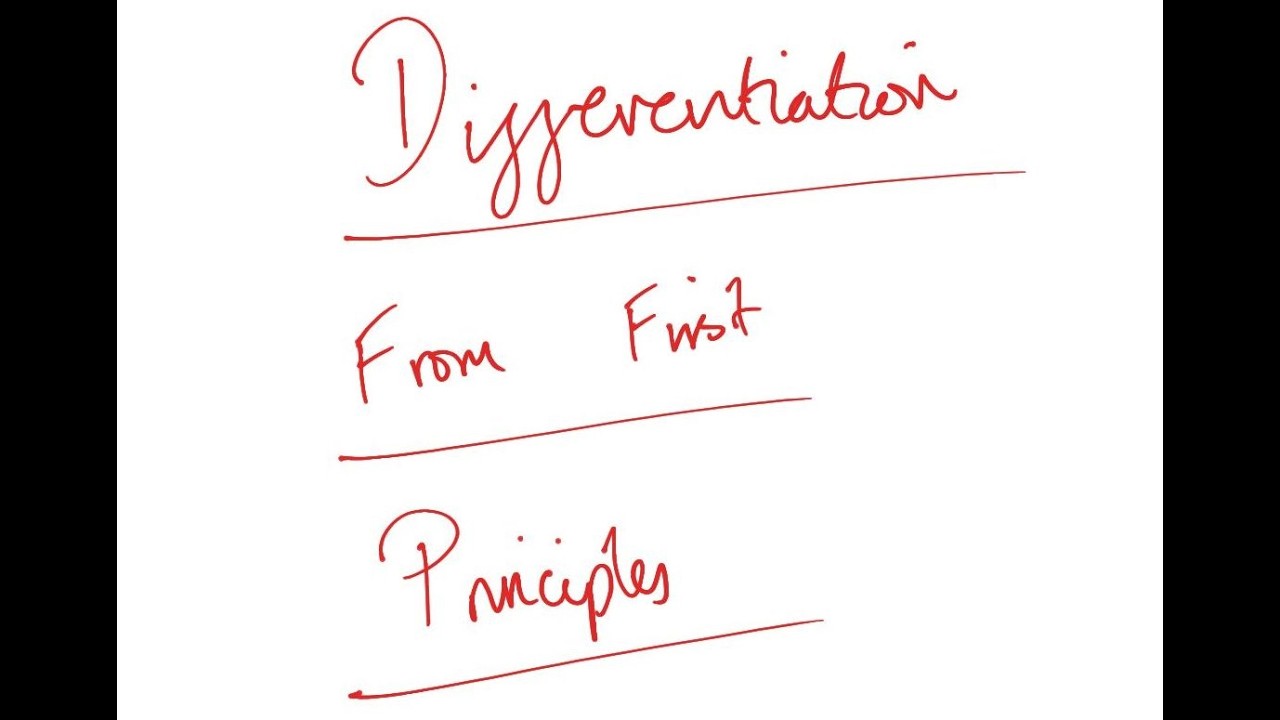 Differentiation
From First
Principles